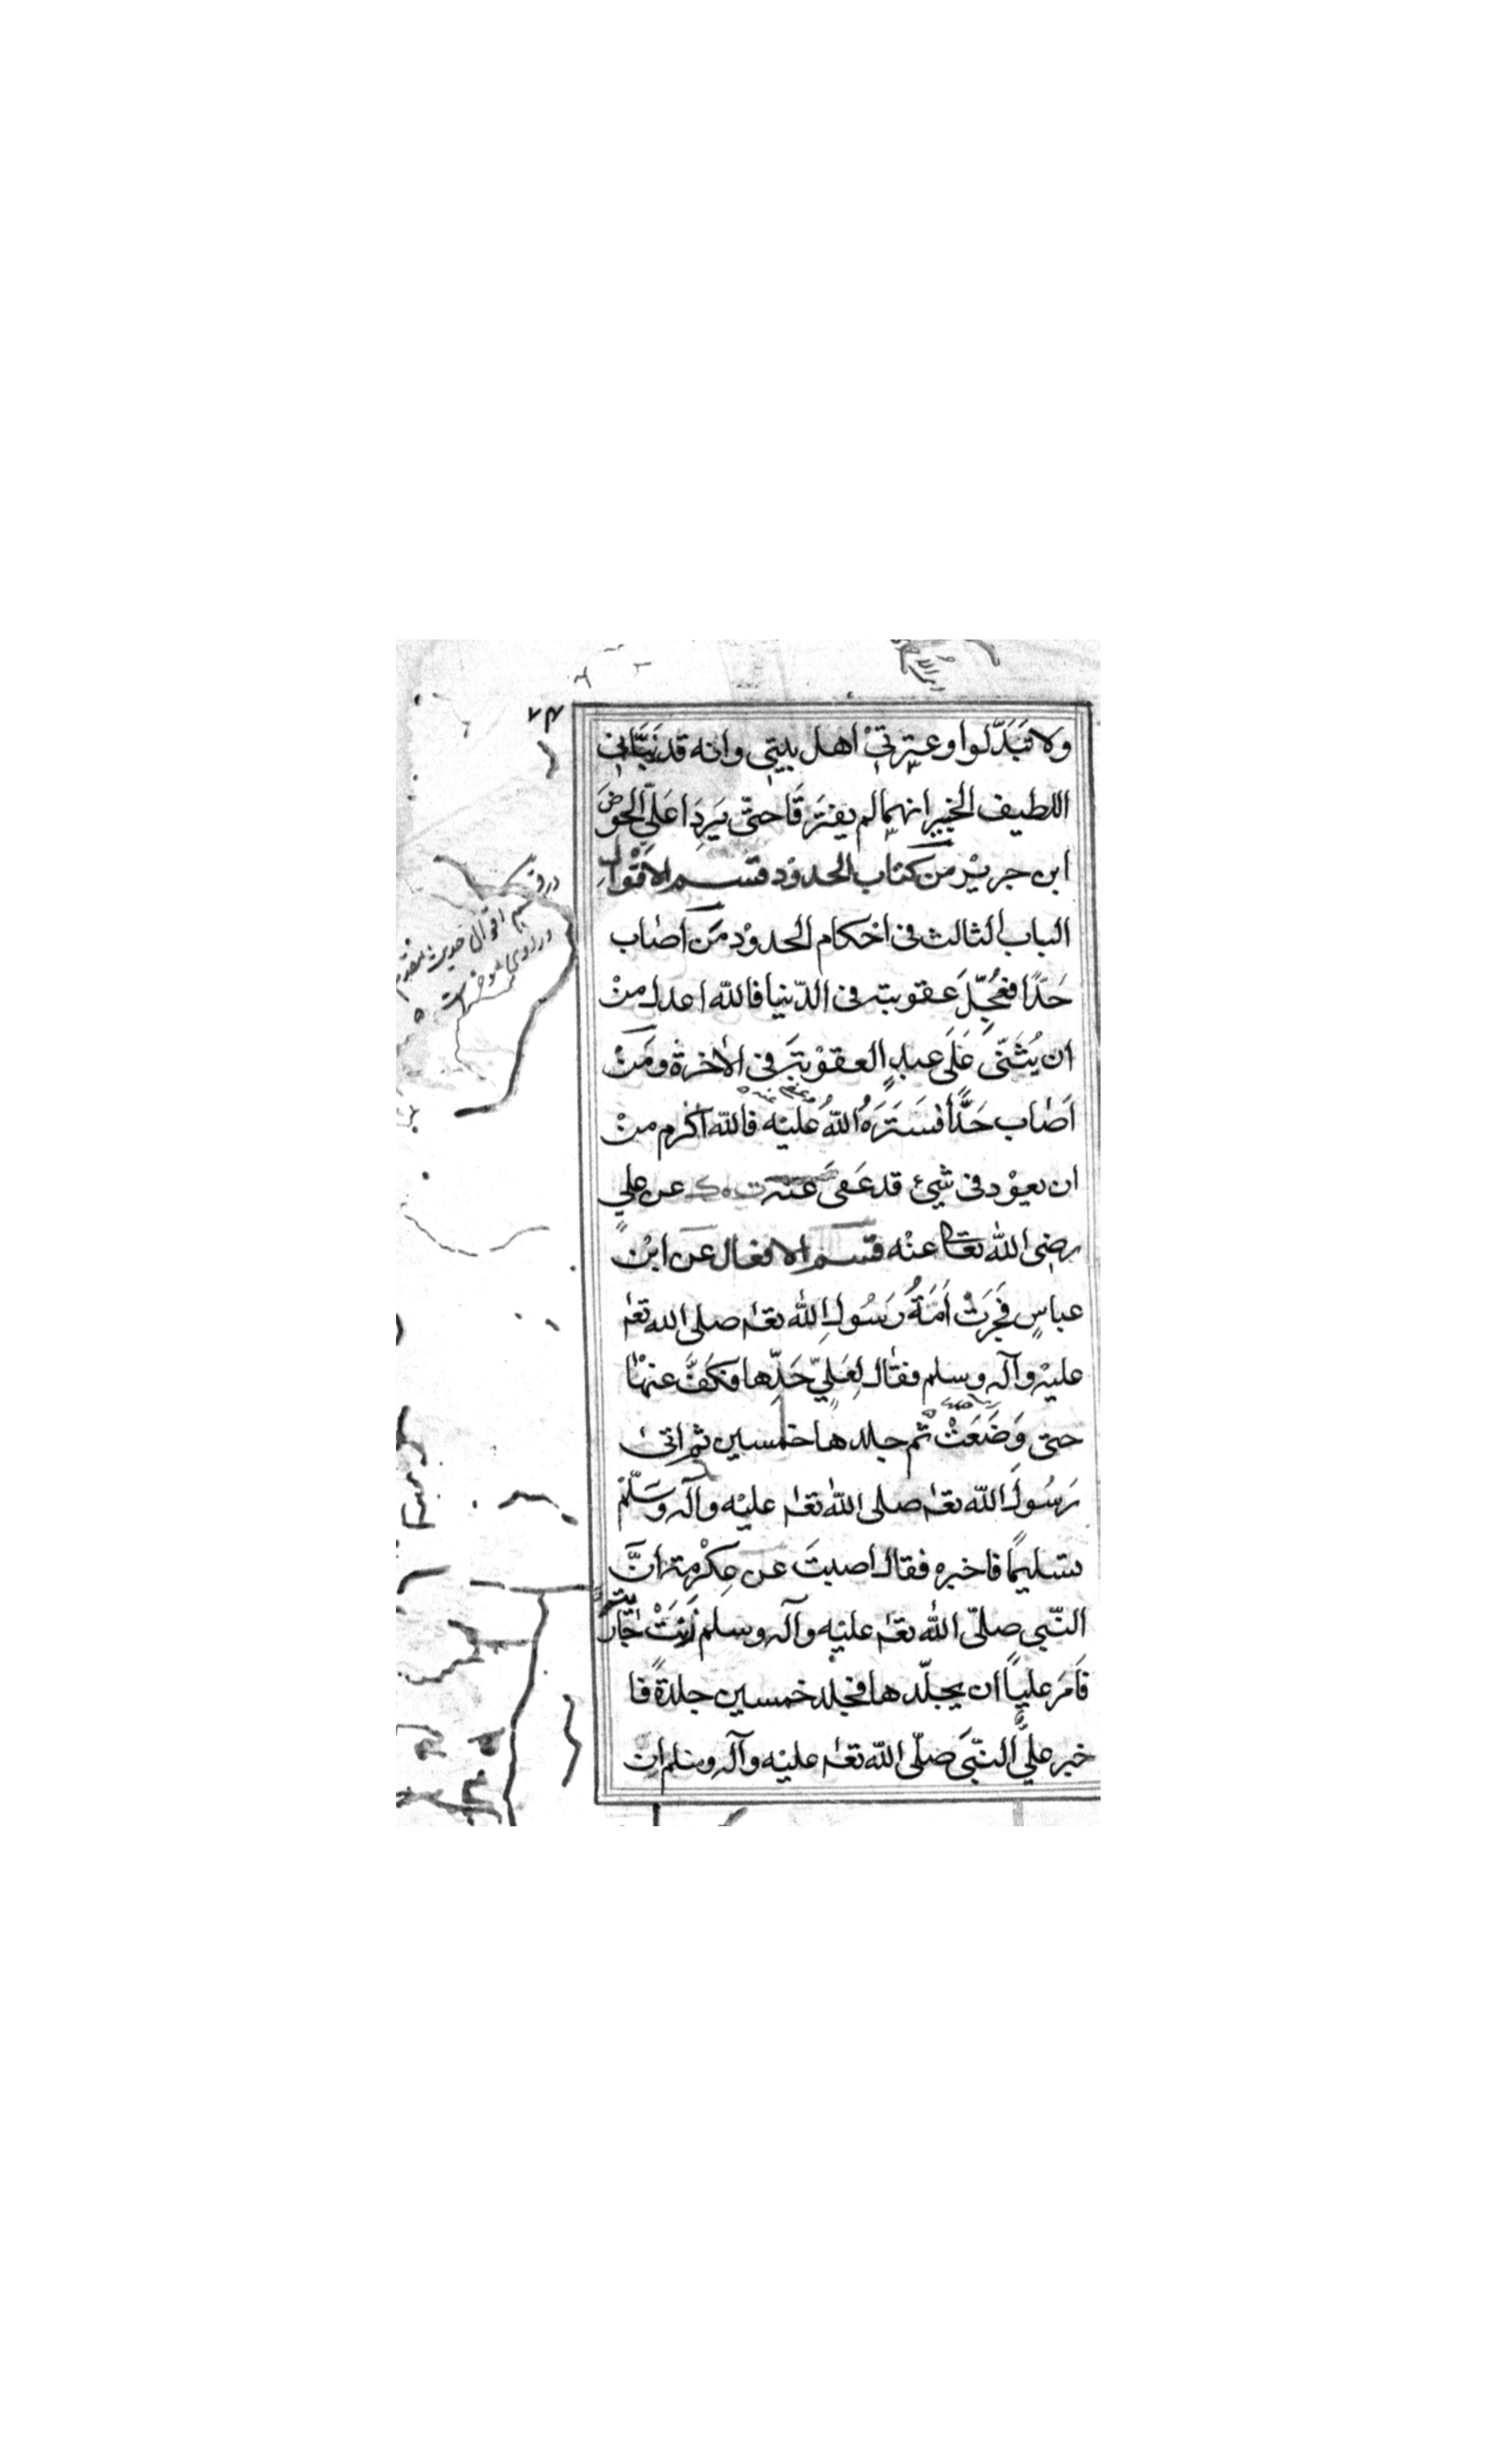 ٧٤
ولا تَبَدَّلوا وعِترتِيْ اهل بيتِي وانه قد نَبَّأنِي
اللطيف الخبير انهما لم يفترَقَا حتّى يَرِدَا عَلَيّ الحوضَ
ابن جريْر من كتاب الحدوْد قسم الاقْوالِ
الباب الثالث فى احكام الحدوْد مَن اصَاب
حَدًّا فعُجِّلَ عقوبته فى الدّنيا فالله اعدل منْ
ان يُثَنّى عَلَى عبدِهِ العقوْبتَه فى الاخرة ومَنْ
اَصَاب حَدًّا فسَتَرَهُ اللهُ عليْه فالله اكرم منْ
ان يعوْد فى شَيئ قد عَفىَ عنْه ت ه ك عن علي
رضِى الله تعالى عنْه قسم الافعال عن ابْن
عباسٍ فَجَرَتْ اَمَةُ رَسُولِ الله تعـٰ صلى الله تعـٰ
عليْه وآله وسلم فقال لِعَلِيّ حَدِّها فكَفَّ عنهْا
حتى وَضَعَتْ ثم جلدها خمسين ثم اتىٰ
رَسُولَ الله تعـٰ صلى الله تعـٰ عليْه وآله وَسَلّمْ
تسليمًا فاخبره فقال اصبتَ عن عِكْرمة انَّ
النّبى صلّى الله تعـٰ عليْه وآله وسلم زَنَتْ جاريته
فَاَمَر علياً ان يجلّدها فجلد خمسين جلدةً فا
خبر عليٌّ النّبيَ صلّى الله تعـٰ عليْه وآله وسلم ان
در قسم اقوال حديث متقدم